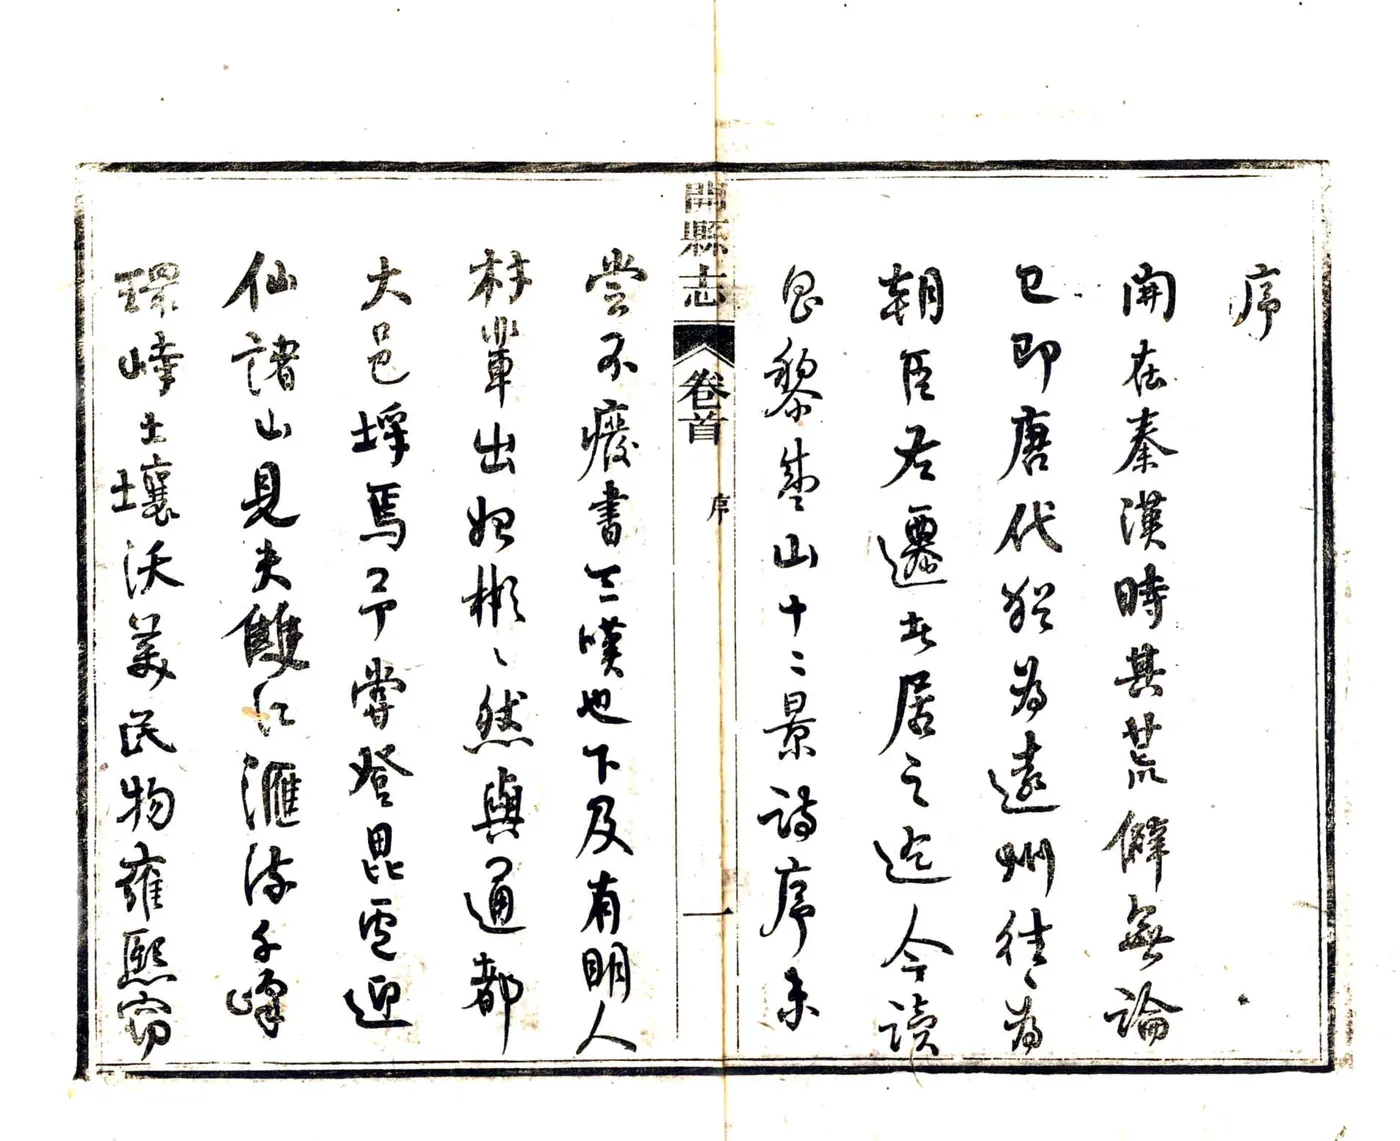 序
開在秦漢時其荒僻無論
已即唐代猶為遠州往〻為
朝臣右遷者居之迄今讀
昌黎盛山十二景詩序未
開縣志
卷首
序
一
嘗不癈書三嘆也下及有明人
材輩出始彬〻然與通都
大邑埒焉予嘗登毘雲迎
仙諸山見夫雙江滙流千峰
環峙土壤沃美民物雍熙竊